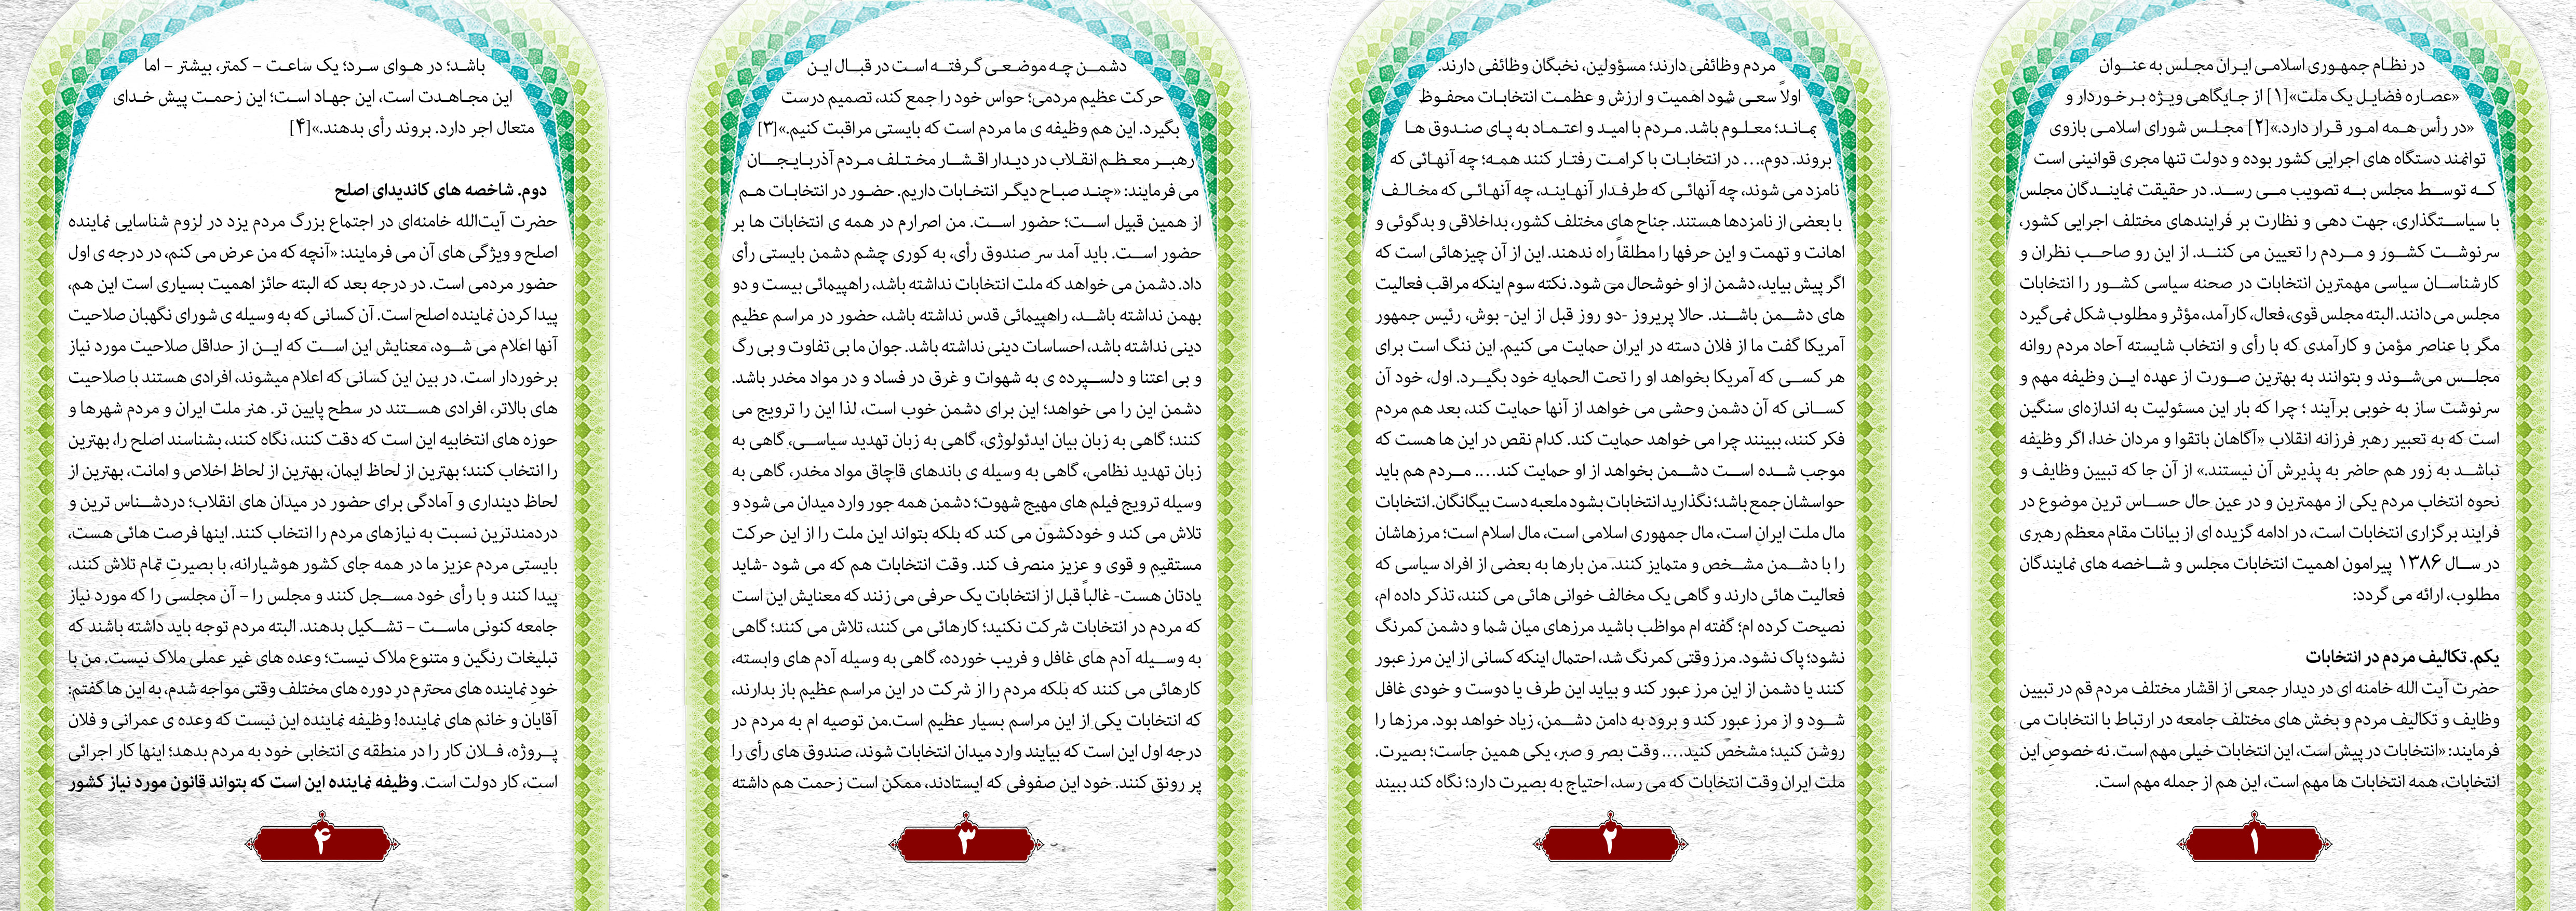 در نظام جمهوری اسلامی ایران مجلس به عنوان
«عصاره فضایل یک ملت»[۱] از جایگاهی ویژه برخوردار و
«در رأس همه امور قرار دارد.»[۲] مجلس شورای اسلامی بازوی
توانمند دستگاه های اجرایی کشور بوده و دولت تنها مجری قوانینی است
که توسط مجلس به تصویب می رسد. در حقیقت نمایندگان مجلس
با سیاستگذاری، جهت دهی و نظارت بر فرایندهای مختلف اجرایی کشور،
سرنوشت کشور و مردم را تعیین می کنند. از این رو صاحب نظران و
کارشناسان سیاسی مهمترین انتخابات در صحنه سیاسی کشور را انتخابات
مجلس می دانند. البته مجلس قوی، فعال، کارآمد، مؤثر و مطلوب شکل نمی‌گیرد
مگر با عناصر مؤمن و کارآمدی که با رأی و انتخاب شایسته آحاد مردم روانه
مجلس می‌شوند و بتوانند به بهترین صورت از عهده این وظیفه مهم و
سرنوشت ساز به خوبی برآیند ؛ چرا که بار این مسئولیت به اندازه‌ای سنگین
است که به تعبیر رهبر فرزانه انقلاب «آگاهان باتقوا و مردان خدا، اگر وظیفه
نباشد به زور هم حاضر به پذیرش آن نیستند.» از آن جا که تبیین وظایف و
نحوه انتخاب مردم یکی از مهمترین و در عین حال حساس ترین موضوع در
فرایند برگزاری انتخابات است، در ادامه گزیده ای از بیانات مقام معظم رهبری
در سال ۱۳۸۶ پیرامون اهمیت انتخابات مجلس و شاخصه های نمایندگان
مطلوب، ارائه می گردد:
یکم. تکالیف مردم در انتخابات
حضرت آیت الله خامنه ای در دیدار جمعی از اقشار مختلف مردم قم در تبیین
وظایف و تکالیف مردم و بخش های مختلف جامعه در ارتباط با انتخابات می
فرمایند: «انتخابات در پیش است، این انتخابات خیلی مهم است. نه خصوصِ این
انتخابات، همه انتخابات ها مهم است، این هم از جمله مهم است.
۱
مردم وظائفی دارند؛ مسؤولین، نخبگان وظائفی دارند.
اولاً سعی شود اهمیت و ارزش و عظمت انتخابات محفوظ
بماند؛ معلوم باشد. مردم با امید و اعتماد به پای صندوق ها
بروند. دوم،... در انتخابات با کرامت رفتار کنند همه؛ چه آنهائی که
نامزد می شوند، چه آنهائی که طرفدار آنهایند، چه آنهائی که مخالف
با بعضی از نامزدها هستند. جناح های مختلف کشور، بداخلاقی و بدگوئی و
اهانت و تهمت و این حرفها را مطلقاً راه ندهند. این از آن چیزهائی است که
اگر پیش بیاید، دشمن از او خوشحال می شود. نکته سوم اینکه مراقب فعالیت
های دشمن باشند. حالا پریروز -دو روز قبل از این- بوش، رئیس جمهور
آمریکا گفت ما از فلان دسته در ایران حمایت می کنیم. این ننگ است برای
هر کسی که آمریکا بخواهد او را تحت الحمایه خود بگیرد. اول، خود آن
کسانی که آن دشمن وحشی می خواهد از آنها حمایت کند، بعد هم مردم
فکر کنند، ببینند چرا می خواهد حمایت کند. کدام نقص در این ها هست که
موجب شده است دشمن بخواهد از او حمایت کند.... مردم هم باید
حواسشان جمع باشد؛ نگذارید انتخابات بشود ملعبه دست بیگانگان. انتخابات
مال ملت ایران است، مال جمهوری اسلامی است، مال اسلام است؛ مرزهاشان
را با دشمن مشخص و متمایز کنند. من بارها به بعضی از افراد سیاسی که
فعالیت هائی دارند و گاهی یک مخالف خوانی هائی می کنند، تذکر داده ام،
نصیحت کرده ام؛ گفته ام مواظب باشید مرزهای میان شما و دشمن کمرنگ
نشود؛ پاک نشود. مرز وقتی کمرنگ شد، احتمال اینکه کسانی از این مرز عبور
کنند یا دشمن از این مرز عبور کند و بیاید این طرف یا دوست و خودی غافل
شود و از مرز عبور کند و برود به دامن دشمن، زیاد خواهد بود. مرزها را
روشن کنید؛ مشخص کنید.... وقت بصر و صبر، یکی همین جاست؛ بصیرت.
ملت ایران وقت انتخابات که می رسد، احتیاج به بصیرت دارد؛ نگاه کند ببیند
۲
دشمن چه موضعی گرفته است در قبال این
حرکت عظیم مردمی؛ حواس خود را جمع کند، تصمیم درست
بگیرد. این هم وظیفه ی ما مردم است که بایستی مراقبت کنیم.»[۳]
رهبر معظم انقلاب در دیدار اقشار مختلف مردم آذربایجان
می فرمایند: «چند صباح دیگر انتخابات داریم. حضور در انتخابات هم
از همین قبیل است؛ حضور است. من اصرارم در همه ی انتخابات ها بر
حضور است. باید آمد سر صندوق رأی، به کوری چشم دشمن بایستی رأی
داد. دشمن می خواهد که ملت انتخابات نداشته باشد، راهپیمائی بیست و دو
بهمن نداشته باشد، راهپیمائی قدس نداشته باشد، حضور در مراسم عظیم
دینی نداشته باشد، احساسات دینی نداشته باشد. جوان ما بی تفاوت و بی رگ
و بی اعتنا و دلسپرده ی به شهوات و غرق در فساد و در مواد مخدر باشد.
دشمن این را می خواهد؛ این برای دشمن خوب است، لذا این را ترویج می
کنند؛ گاهی به زبان بیان ایدئولوژی، گاهی به زبان تهدید سیاسی، گاهی به
زبان تهدید نظامی، گاهی به وسیله ی باندهای قاچاق مواد مخدر، گاهی به
وسیله ترویج فیلم های مهیج شهوت؛ دشمن همه جور وارد میدان می شود و
تلاش می کند و خودکشون می کند که بلکه بتواند این ملت را از این حرکت
مستقیم و قوی و عزیز منصرف کند. وقت انتخابات هم که می شود -شاید
یادتان هست- غالباً قبل از انتخابات یک حرفی می زنند که معنایش این است
که مردم در انتخابات شرکت نکنید؛ کارهائی می کنند، تلاش می کنند؛ گاهی
به وسیله آدم های غافل و فریب خورده، گاهی به وسیله آدم های وابسته،
کارهائی می کنند که بلکه مردم را از شرکت در این مراسم عظیم باز بدارند،
که انتخابات یکی از این مراسم بسیار عظیم است.من توصیه ام به مردم در
درجه اول این است که بیایند وارد میدان انتخابات شوند، صندوق های رأی را
پر رونق کنند. خود این صفوفی که ایستادند، ممکن است زحمت هم داشته
۳
باشد؛ در هوای سرد؛ یک ساعت - کمتر، بیشتر - اما
این مجاهدت است، این جهاد است؛ این زحمت پیش خدای
متعال اجر دارد. بروند رأی بدهند.»[۴]
دوم. شاخصه های کاندیدای اصلح
حضرت آیت‌الله خامنه‌ای در اجتماع بزرگ مردم یزد در لزوم شناسایی نماینده
اصلح و ویژگی های آن می فرمایند: «آنچه که من عرض می کنم، در درجه ی اول
حضور مردمی است. در درجه بعد که البته حائز اهمیت بسیاری است این هم،
پیدا کردن نماینده اصلح است. آن کسانی که به وسیله ی شورای نگهبان صلاحیت
آنها اعلام می شود، معنایش این است که این از حداقل صلاحیت مورد نیاز
برخوردار است. در بین این کسانی که اعلام میشوند، افرادی هستند با صلاحیت
های بالاتر، افرادی هستند در سطح پایین تر. هنر ملت ایران و مردم شهرها و
حوزه های انتخابیه این است که دقت کنند، نگاه کنند، بشناسند اصلح را، بهترین
را انتخاب کنند؛ بهترین از لحاظ ایمان، بهترین از لحاظ اخلاص و امانت، بهترین از
لحاظ دینداری و آمادگی برای حضور در میدان های انقلاب؛ دردشناس ترین و
دردمندترین نسبت به نیازهای مردم را انتخاب کنند. اینها فرصت هائی هست،
بایستی مردم عزیز ما در همه جای کشور هوشیارانه، با بصیرتِ تمام تلاش کنند،
پیدا کنند و با رأی خود مسجل کنند و مجلس را - آن مجلسی را که مورد نیاز
جامعه کنونی ماست - تشکیل بدهند. البته مردم توجه باید داشته باشند که
تبلیغات رنگین و متنوع ملاک نیست؛ وعده های غیر عملی ملاک نیست. من با
خودِ نماینده های محترم در دوره های مختلف وقتی مواجه شدم، به این ها گفتم:
آقایان و خانم های نماینده! وظیفه نماینده این نیست که وعده ی عمرانی و فلان
پروژه، فلان کار را در منطقه ی انتخابی خود به مردم بدهد؛ اینها کار اجرائی
است، کار دولت است. وظیفه نماینده این است که بتواند قانون مورد نیاز کشور
۴